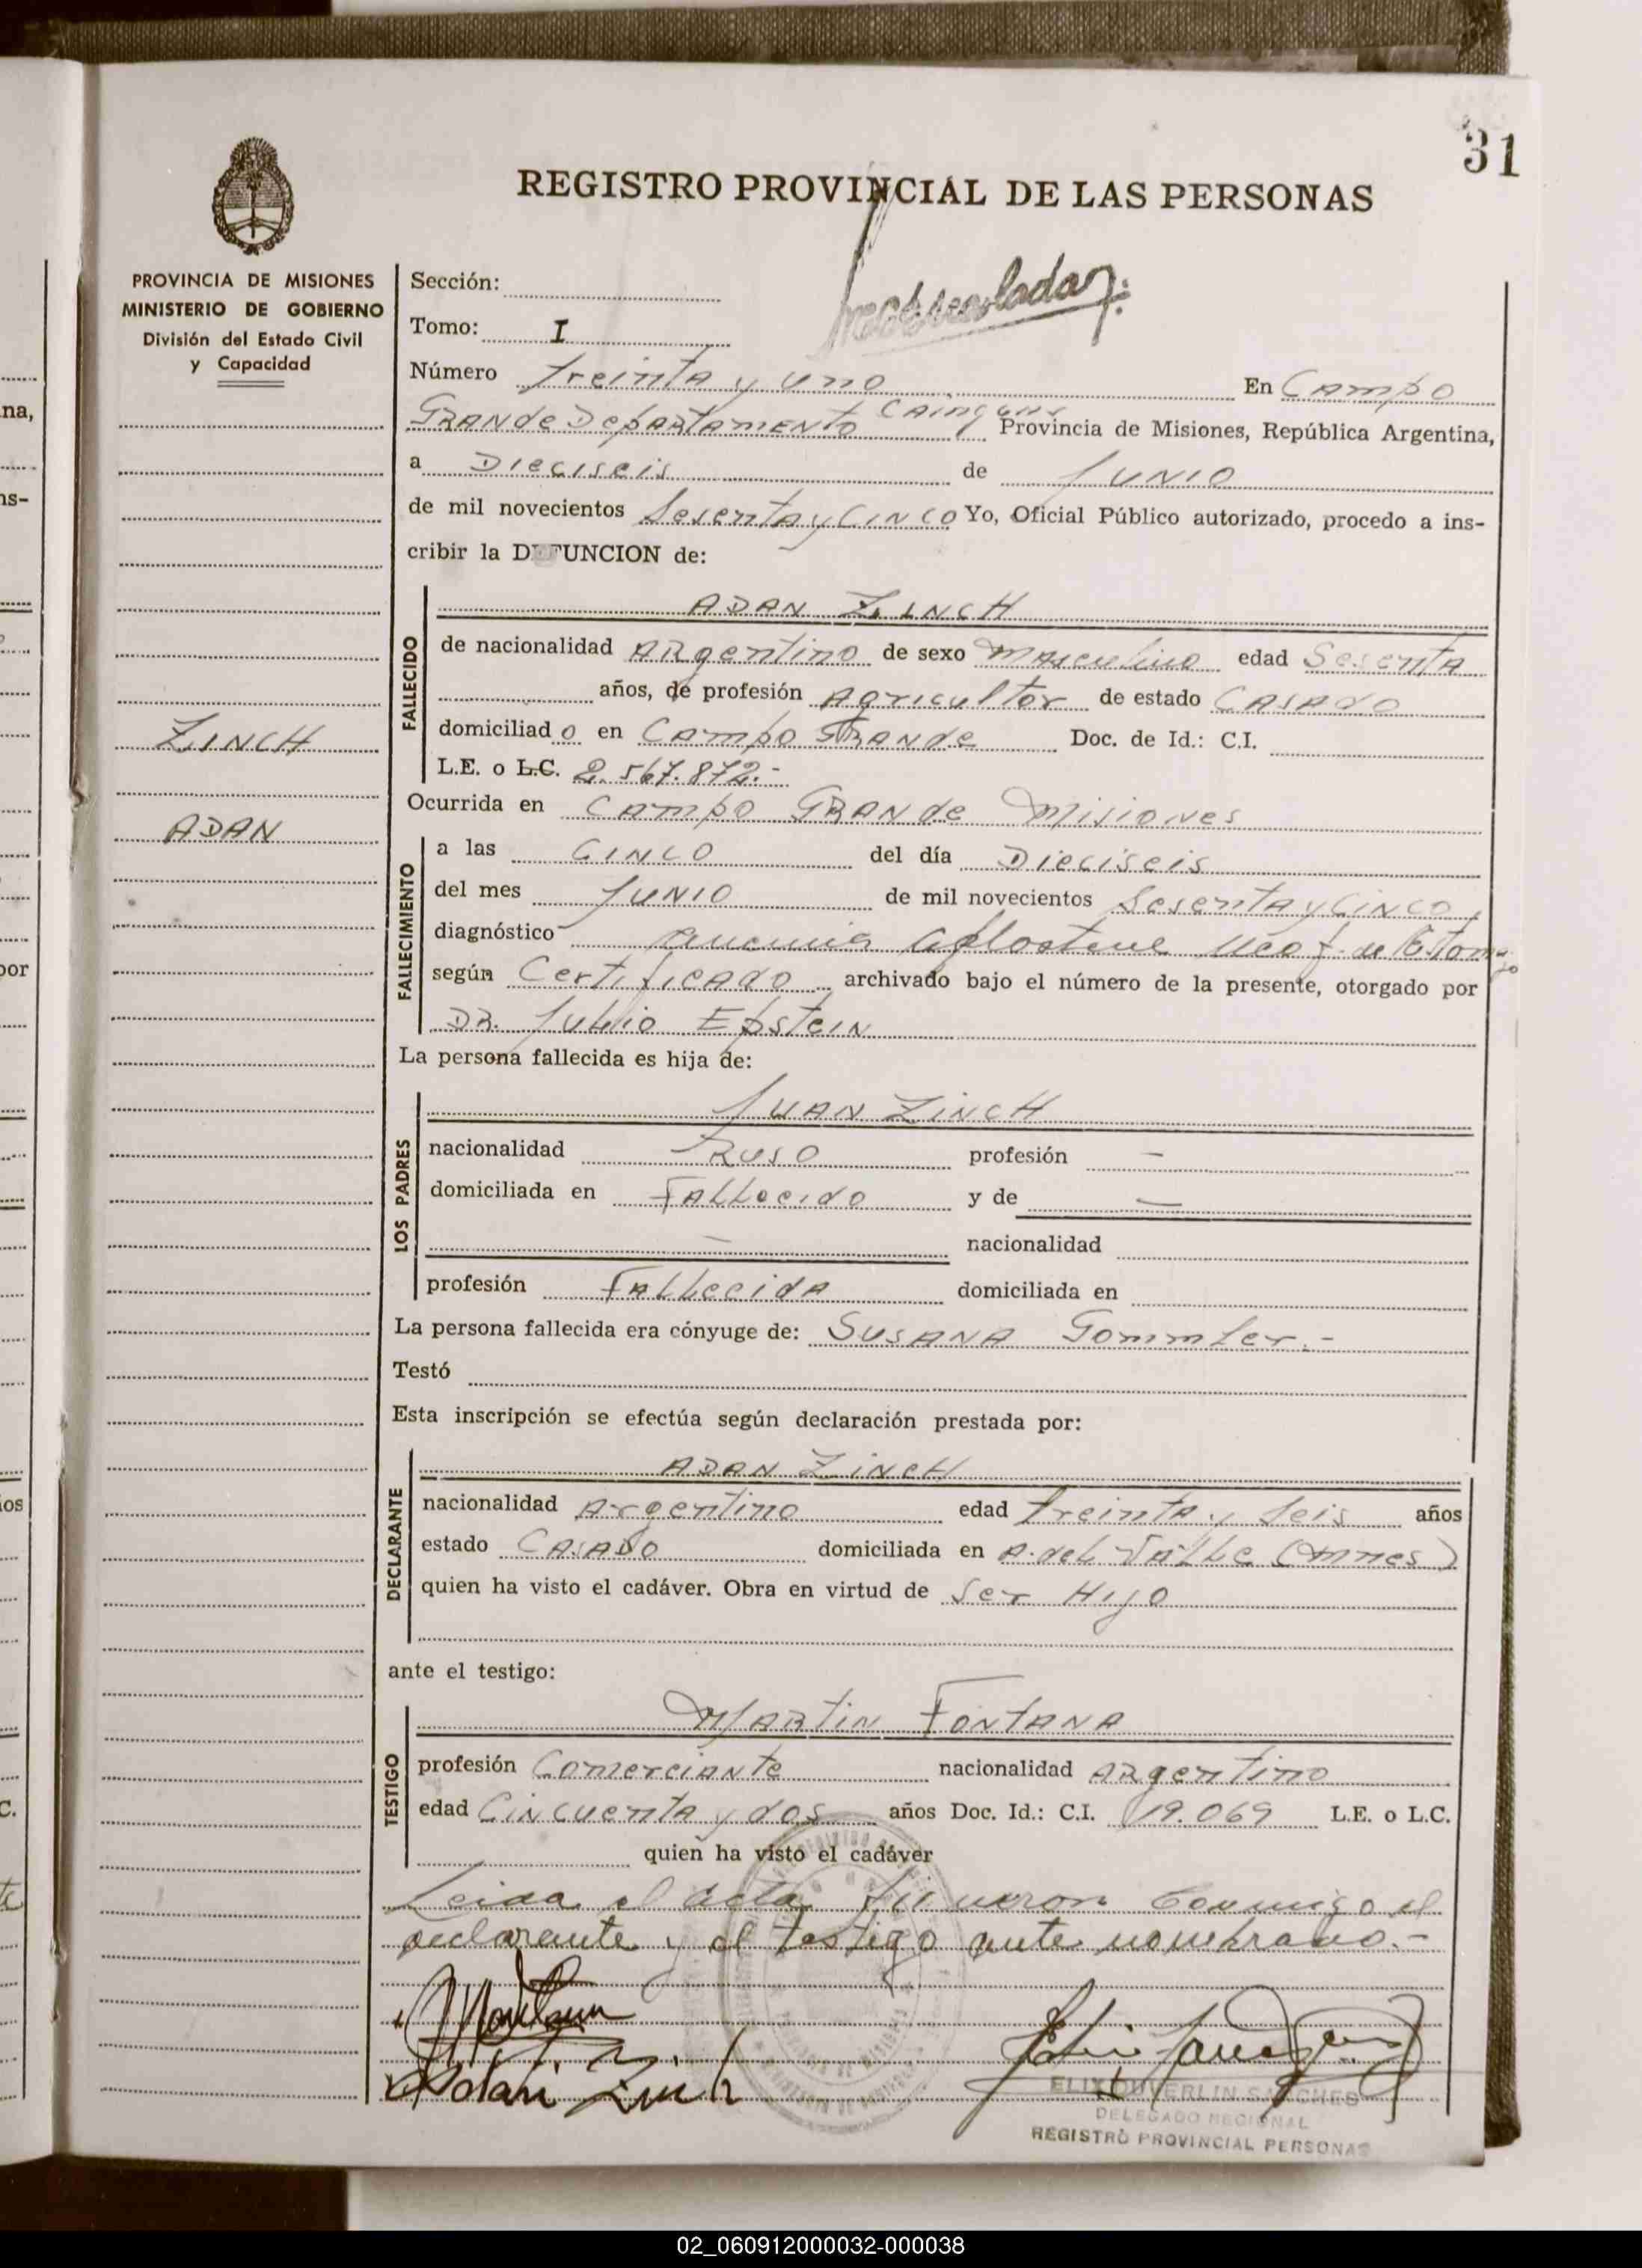 31
REGISTRO PROVINCIAL DE LAS PERSONAS
PROVINCIA DE MISIONES
MINISTERIO DE GOBIERNO
División del Estado Civil
y Capacidad
ZINCH
ADAN
Sección:
Tomo: I
Número Treinta y uno En CAMPO
GRANde DepARTAMENTO CAinguas Provincia de Misiones, República Argentina,
a Dieciseis de JUNIO
de mil novecientos Sesenta y CINCO Yo, Oficial Público autorizado, procedo a ins-
cribir la DEFUNCION de:
FALLECIDO
ADAN ZINCH
de nacionalidad ARgentino de sexo MAsculino edad Sesenta
años, de profesión Agricultor de estado CASADO
domiciliado en CAMPO GRANde Doc. de Id.: C.I.
L.E. o L.C. 2.567.872.-
Ocurrida en CAMPO GRANde Misiones
FALLECIMIENTO
a las CINCO del día Dieciseis
del mes JUNIO de mil novecientos Sesenta y CINCO
diagnóstico anemia de Estomago
según Certificado archivado bajo el número de la presente, otorgado por
DR. Julio Epstein
La persona fallecida es hija de:
LOS PADRES
JUAN ZINCH
nacionalidad RUSO profesión —
domiciliada en FALLecido y de —
— nacionalidad
profesión FALLecidA domiciliada en
La persona fallecida era cónyuge de: SUSANA Gommler.-
Testó
Esta inscripción se efectúa según declaración prestada por:
DECLARANTE
ADAN ZINCH
nacionalidad Argentino edad Treinta y Seis años
estado CASADO domiciliada en A. del VALLe (Mnes)
quien ha visto el cadáver. Obra en virtud de Ser Hijo
ante el testigo:
TESTIGO
MARTIN FONTANA
profesión ComerciANte nacionalidad ARgentino
edad Cincuenta y dos años Doc. Id.: C.I. 119.069 L.E. o L.C.
quien ha visto el cadáver
Leida el acta firmaron conmigo el
declarante y el testigo ante nombrado.-
Adan Zinch
DELEGADO REGIONAL
REGISTRO PROVINCIAL PERSONAS
02_060912000032-000038